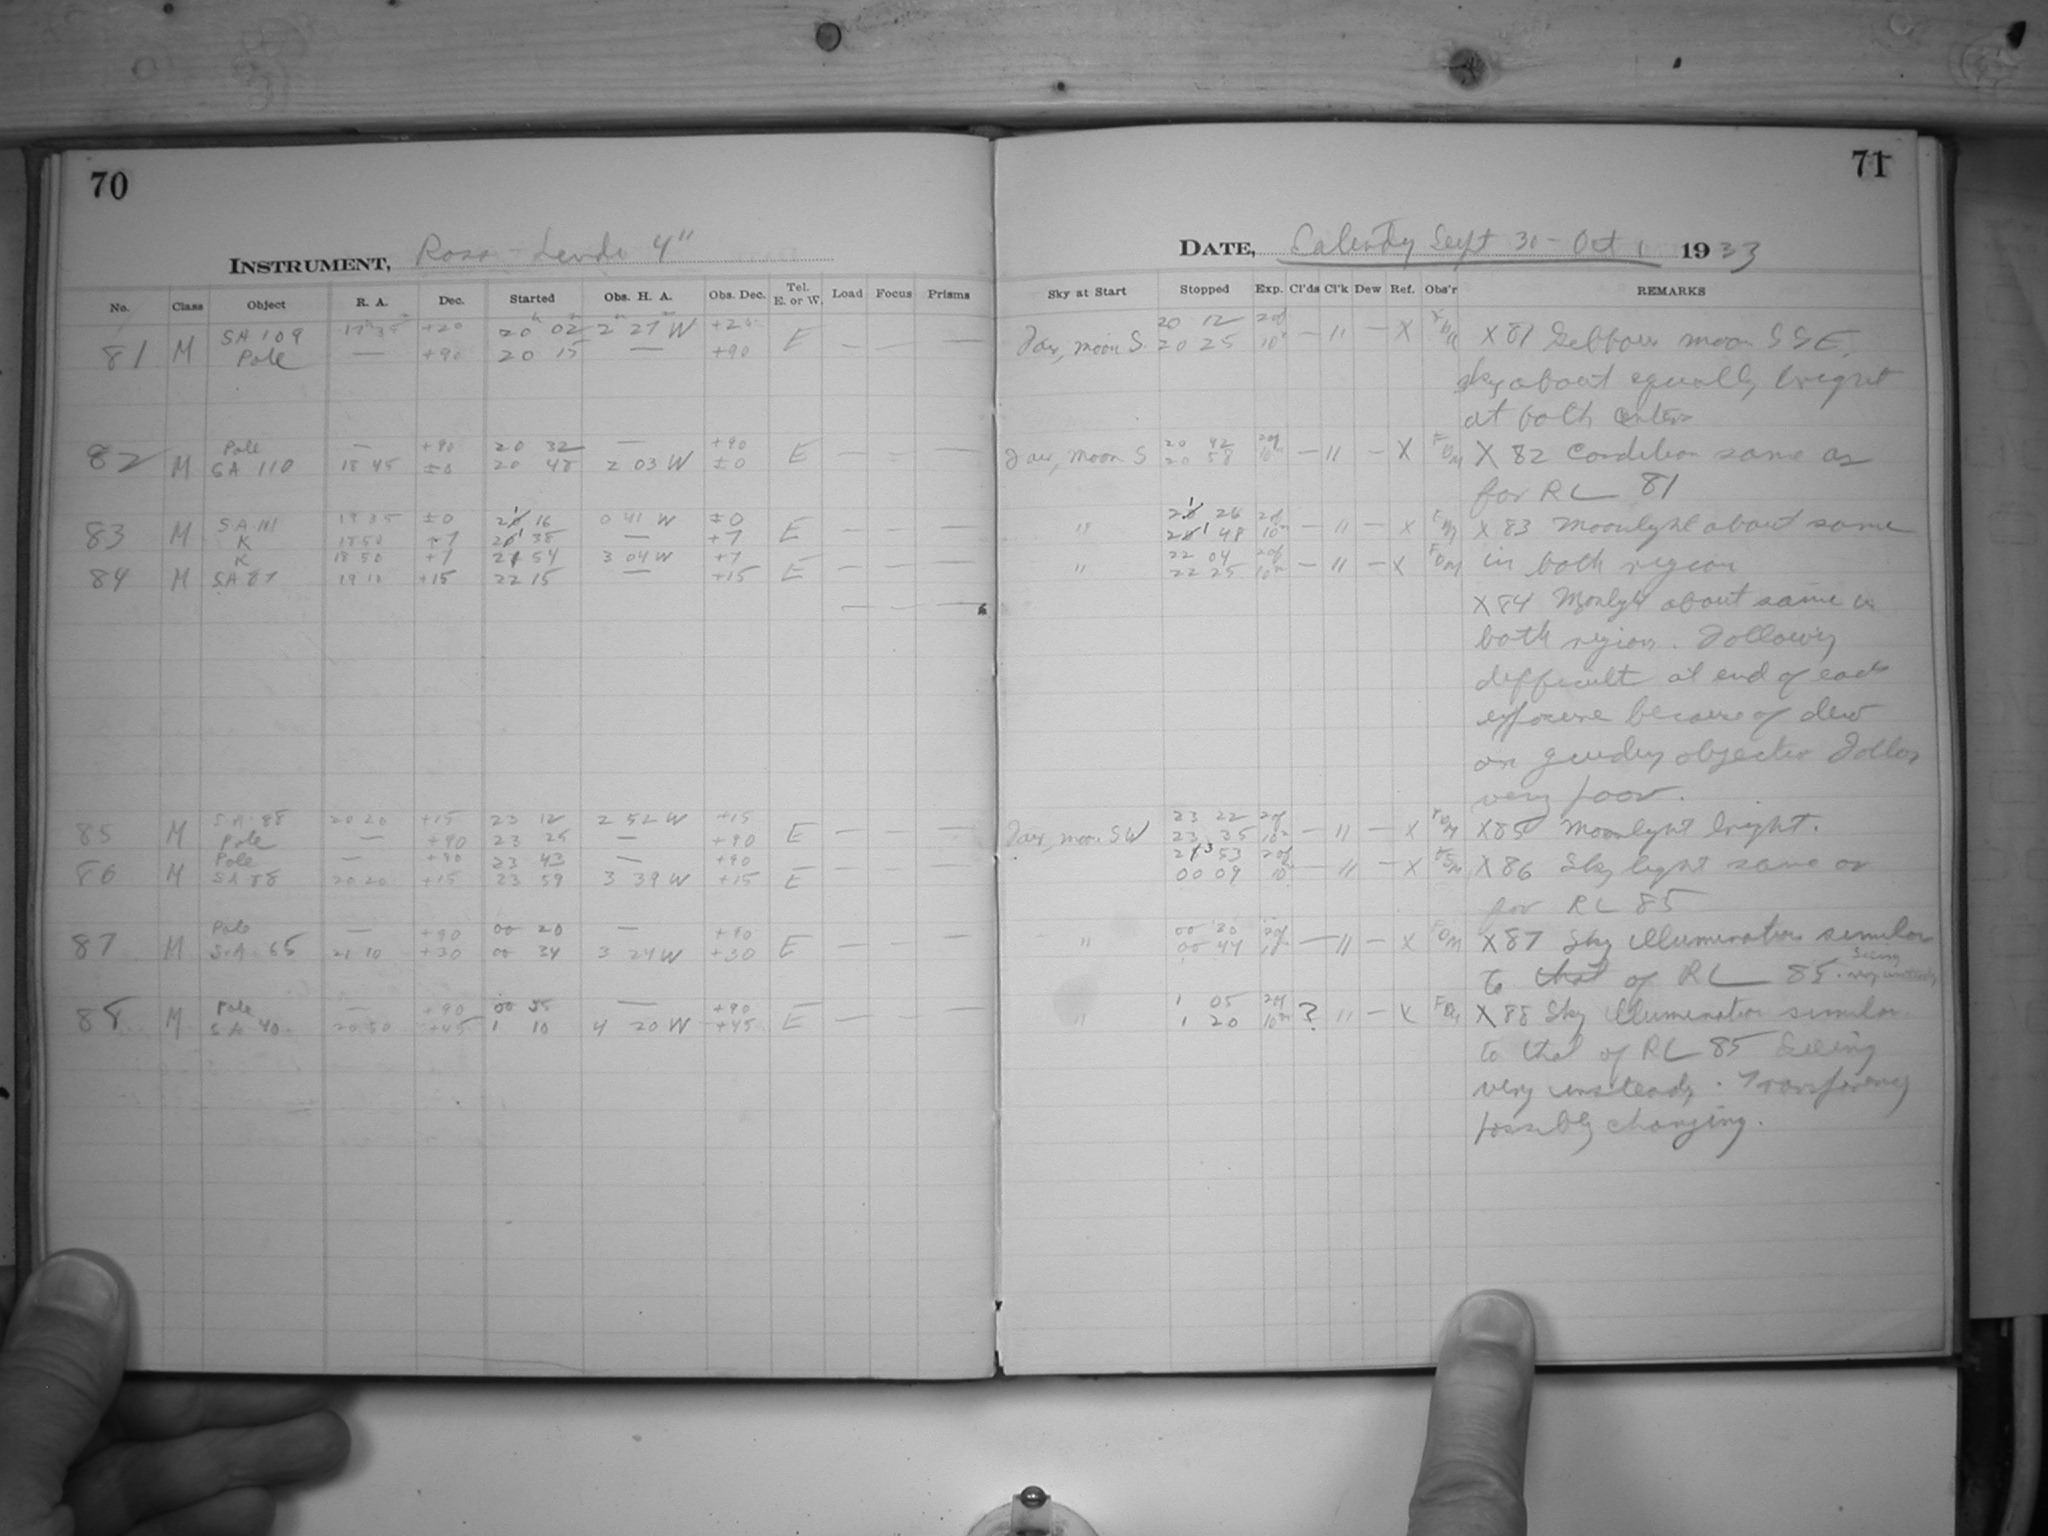 70
INSTRUMENT, Ross-Lundin 4"
No. Class Object R. A. Dec. Started Obs. H. A. Obs. Dec. Tel. E. or W. Load Focus Prisms
SA 109 17 35 +20 20 02 2 27 W
81 M Pole — +90 20 15 — +90 E — — —
Pole — +90 20 32 — +90
82 M SA 110 18 45 ±0 20 48 2 03 W ±0 E — — —
SA 111 19 35 ±0 16 0 41 W ±0
83 M K 18 50 +7 38 — +7 E — — —
K 18 50 +7 21 54 3 04 W +7
84 M SA 87 19 10 +15 22 15 — +15 E — — —
— — —
SA 88 20 20 +15 23 12 2 52 W +15
85 M Pole — +90 23 25 — +90 E — — —
Pole — +90 23 43 — +90
86 M SA 88 20 20 +15 23 59 3 39 W +15 E — — —
Pole — +90 00 20 — +90
87 M S.A. 65 21 10 +30 00 34 3 24 W +30 E — — —
Pole — +90 00 55 — +90
88 M SA 40 20 50 +45 1 10 4 20 W +45 E — — —
71
DATE, Saturday Sept 30 - Oct 1 1933
Sky at Start Stopped Exp. Cl'ds Cl'k Dew Ref. Obs'r REMARKS
20 12 2 of
Fair, moon S. 20 25 10m — " — X X 81 Gibbous moon SSE,
sky about equally bright
at both centers
20 42 2 of
Fair, moon S 20 58 10m — " — X FDM X 82 Condition same as
for RL 81
26 2 of
" 48 10m — " — X X 83 Moonlight about same
22 04 2 of
" 22 25 10m — " — X FDM in both region
X 84 Moonlight about same in
both region. Following
difficult at end of each
exposure because of dew
on guiding objective
very poor.
23 22 2 of
Fair, moon SW 23 35 10m — " — X FDM X 85 Moonlight bright.
53 2 of
00 09 10m — " — X X 86 Sky light same as
for RL 85
00 30 2 of
" 00 44 10m — " — X FDM X 87 Sky illumination similar
to that of RL 85. Seeing
very unsteady
1 05 2 of
" 1 20 10m ? " — X X 88 Sky illumination similar
to that of RL 85 Seeing
very unsteady. Transparency
possibly changing.